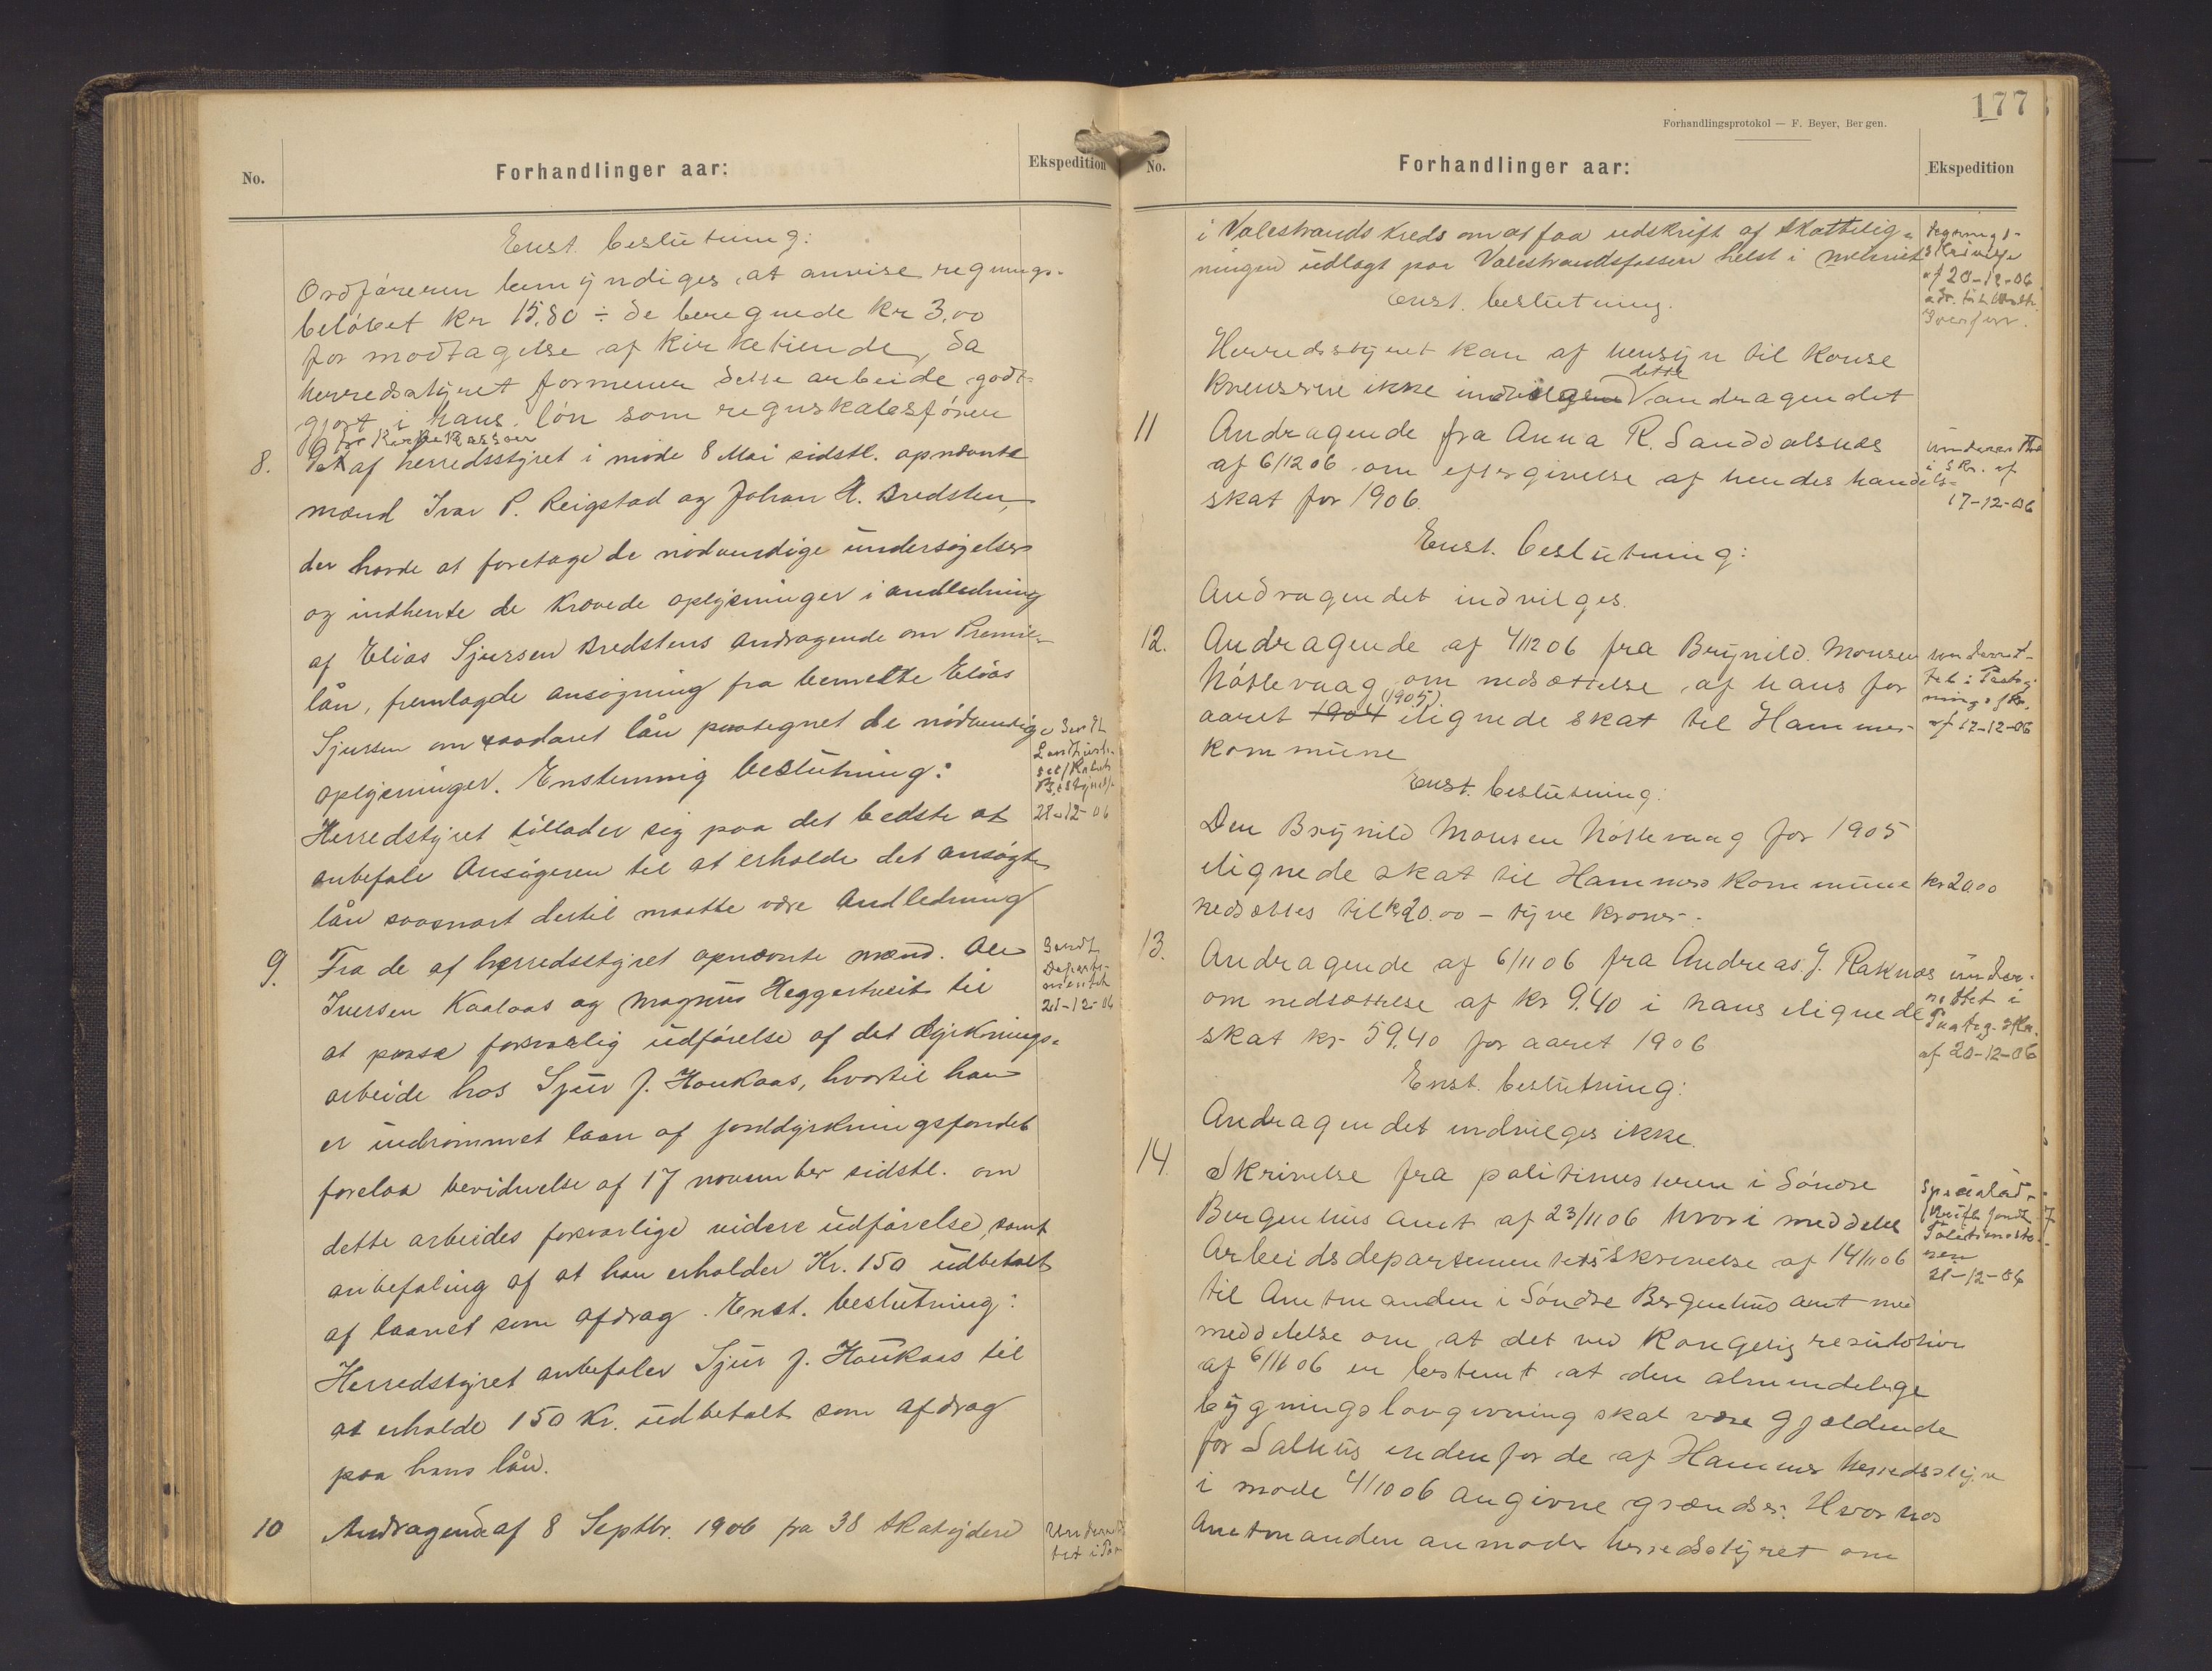 No.
Forhandlinger aar:
Ekspedition
Enst. beslutning:
Ordføreren bemyndiges at anvise regnings-
beløbet kr 15,80 ÷ de beregnede kr 3,00
for modtagelse af kirketiende, da
herredsstyret formener dette arbeide godt-
gjort i hans løn som regnskabsfører
for Kirkekassen
8.
De af herredsstyret i møde 8 Mai sidstl. opnævnte
mænd Ivar P. Reigstad og Johan H. Bredsten,
der havde at foretage de nødvendige undersøgelser
og indhente de krævede oplysninger i andledning
af Elias Sjursen Bredstens Andragende om Premie-
lån, fremlagde ansøgning fra bemeldte Elias
Sjursen om saadant lån paategnet de nødvendige
oplysninger. Enstemmig beslutning:
Herredstyret tillader sig paa det bedste at
anbefale Ansøgeren til at erholde det ansøgte
lån saasnart dertil maatte være Andledning
Sendt
28-12-06
9.
Fra de af herredsstyret opnævnte mænd. Ole
Iversen Kaalaas og Magnus Heggertveit til
at passe forsvarlig udførelse af det dyrknings-
arbeide hos Sjur J. Houkaas, hvortil han
er indrømmet laan af jorddyrkningsfondet
forelaa bevidnelse af 17 november sidstl. om
dette arbeides forsvarlige videre udførelse, samt
anbefaling af at han erholder Kr. 150 udbetalt
af laanet som afdrag. Enst. beslutning:
Herredstyret anbefaler Sjur J. Houkaas til
at erholde 150 Kr. udbetalt som afdrag
paa hans lån.
Sendt
Departe-
mentet
21-12-06
10
Andragende af 8 Septbr. 1906 fra 38 skatydere
Underret-
tet i Paa
177
Forhandlingsprotokol — F. Beyer, Bergen.
No.
Forhandlinger aar:
Ekspedition
i Valestrands kreds om at faa udskrift af skattelig-
ningen udlagt paa Valestrandsfossen helst i
Enst. beslutning.
Herredsstyret kan af hensyn til konse
kvenserne ikke indvilgen dette andragendet
tegnings-
skrivelse
af 20-12-06
11
Andragende fra Anna R. Sanddalsnes
af 6/12 06 om eftergivelse af hendes handels-
skat for 1906.
Enst. beslutning:
Andragendet indvilges.
underrettet
i skr. af
17-12-06
12.
Andragende af 4/12 06 fra Brynild Monsen
Nøttevaag om nedsættelse af hans for
aaret 1904 (1905) ilignede skat til Hammer
kommune
Enst. beslutning:
Den Brynild Monsen Nøttevaag for 1905
ilignede skat til Hammers kommune kr 20.00
nedsættes til kr 20.00 – tyve kroner.
underret-
tet i Paateg-
nings skr.
af 17-12-06
13.
Andragende af 6/11 06 fra Andreas J. Raknes
om nedsættelse af kr 9.40 i hans ilignede
skat kr 59.40 for aaret 1906
Enst. beslutning:
Andragendet indvilges ikke.
under-
rettet i
Paateg. skr.
af 20-12-06
14.
Skrivelse fra politimesteren i Søndre
Bergenhus amt af 23/11 06 hvori meddeles
Arbeidsdepartementets skrivelse af 14/11 06
til Amtmanden i Søndre Bergenhus amt med
meddelelse om at det ved kongelig resulotion
af 6/11 06 er bestemt at den almindelige
bygningslovgivning skal være gjældende
for Salhus indenfor de af Hammer herredsstyre
i møde 4/10 06 angivne grændser. Hvorhos
Amtmanden anmoder herredsstyret om
Specialud-
skrift sendt
Politimeste-
ren
21-12-06